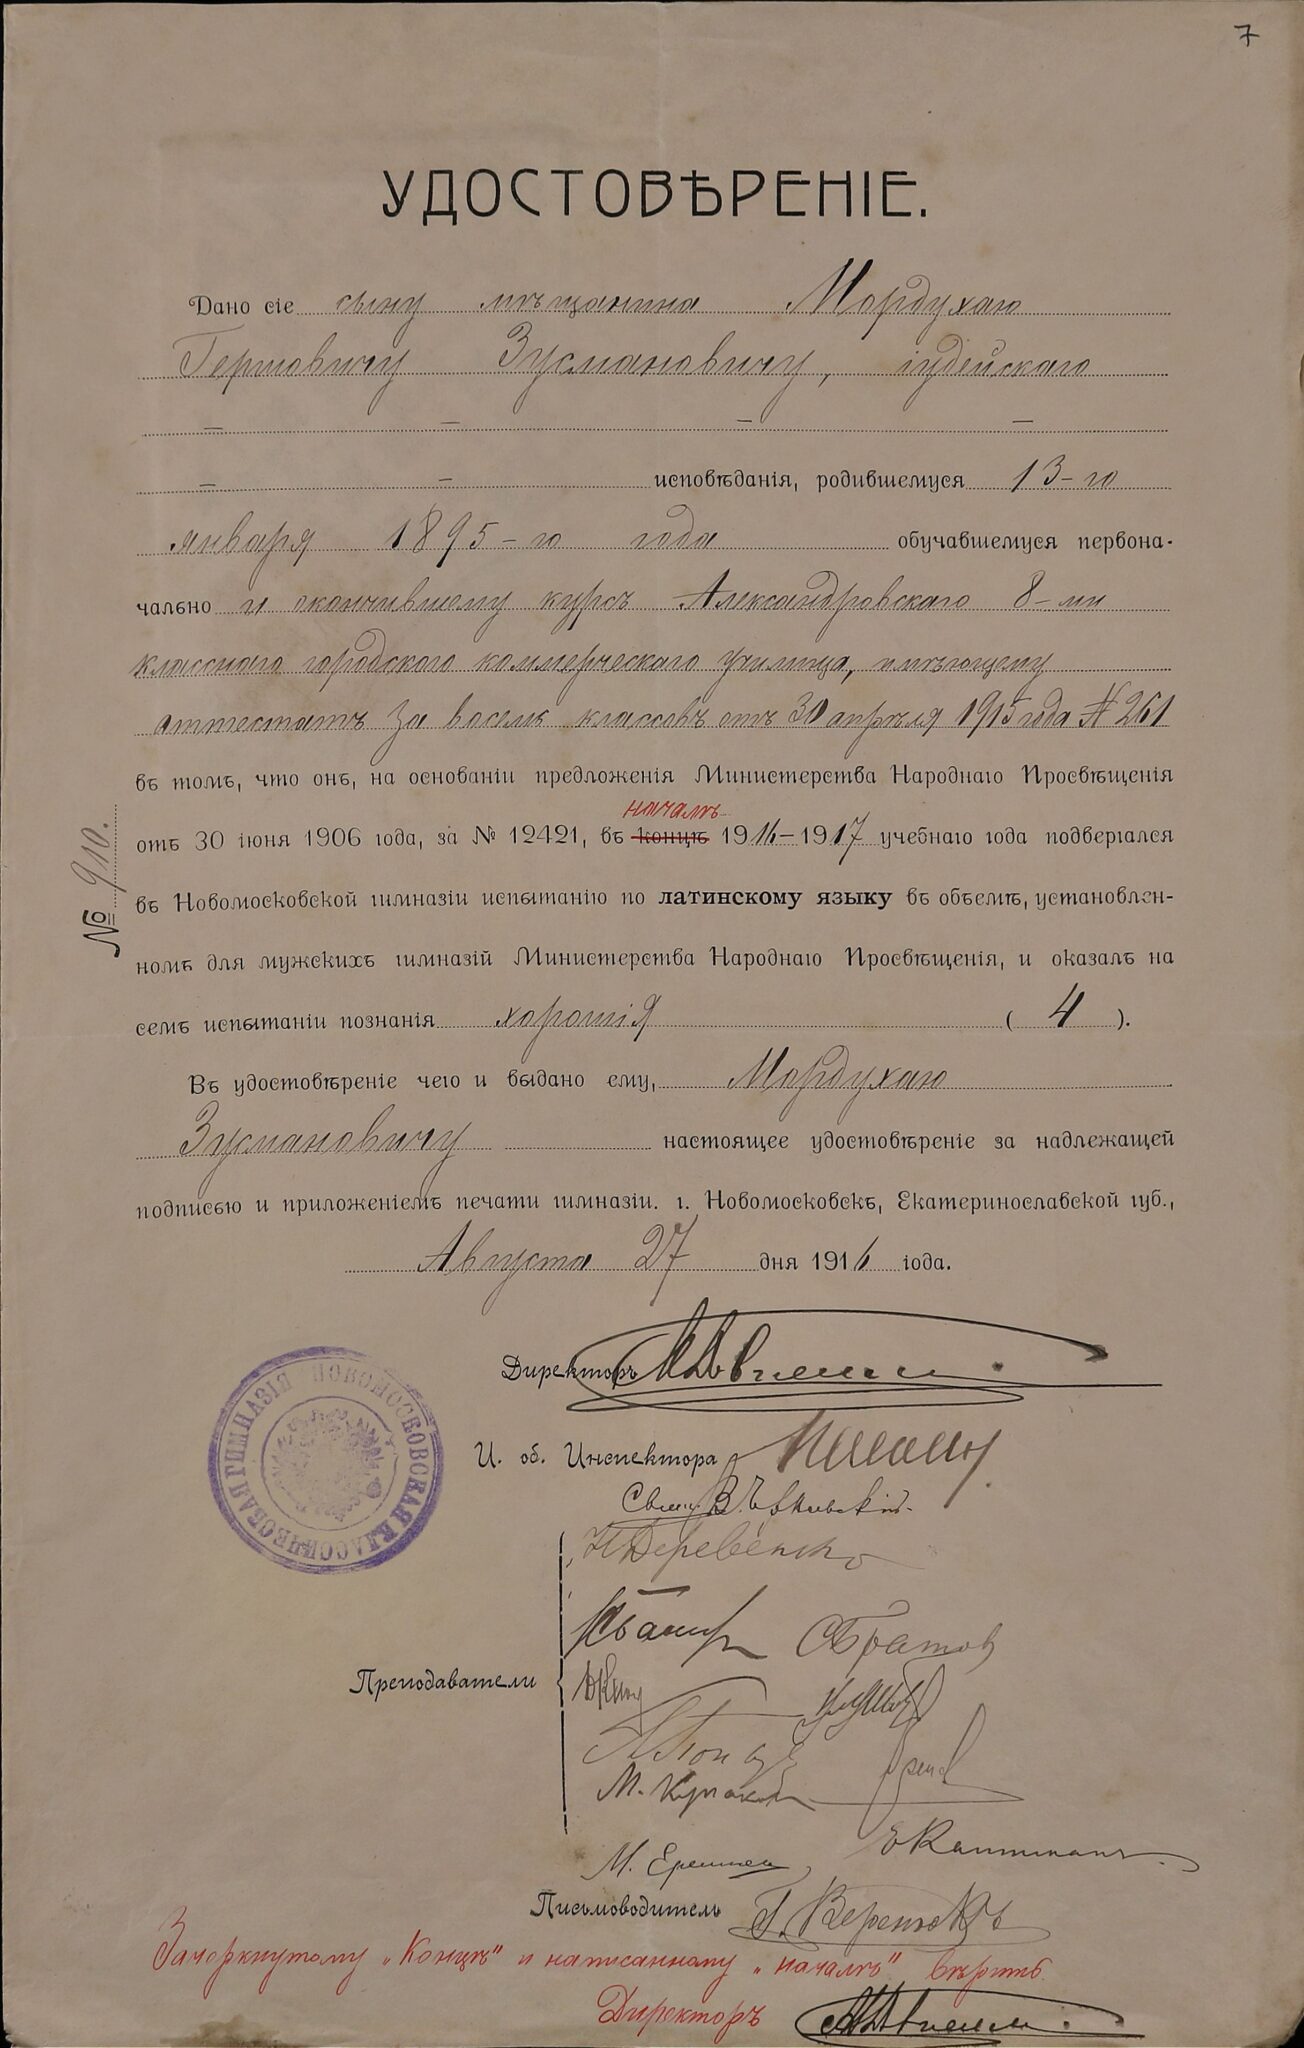 7
УДОСТОВѢРЕНІЕ.
Дано сіе сыну мѣщанина Мордухаю
Гершовичу Зусмановичу, іудейскаго
— — — —
— — исповѣданія, родившемуся 13-го
января 1895-го года обучавшемуся первона-
чально и окончившему курсъ Александровскаго 8-ми
класснаго городского коммерческаго училища, имѣющему
аттестатъ за восемь классовъ отъ 30 апрѣля 1915 года № 261
въ томъ, что онъ, на основаніи предложенія Министерства Народнаго Просвѣщенія
началѣ
отъ 30 іюня 1906 года, за № 12421, въ концѣ 1916-1917 учебнаго года подвергался
въ Новомосковской гимназіи испытанію по латинскому языку въ объемѣ, установлен-
номъ для мужскихъ гимназій Министерства Народнаго Просвѣщенія, и оказалъ на
семъ испытаніи познанія хорошія ( 4 ).
Въ удостовѣреніе чего и выдано ему, Мордухаю
Зусмановичу настоящее удостовѣреніе за надлежащей
подписью и приложеніемъ печати гимназіи. г. Новомосковскъ, Екатеринославской губ.,
Августа 27 дня 1916 года.
№ 910.
Директоръ
И. об. Инспектора
НОВОМОСКОВСКАЯ КЛАССИЧЕСКАЯ ГИМНАЗІЯ
Преподаватели
Письмоводитель
Зачоркнутому „Концѣ" и написанному „началѣ" вѣрить.
Директоръ